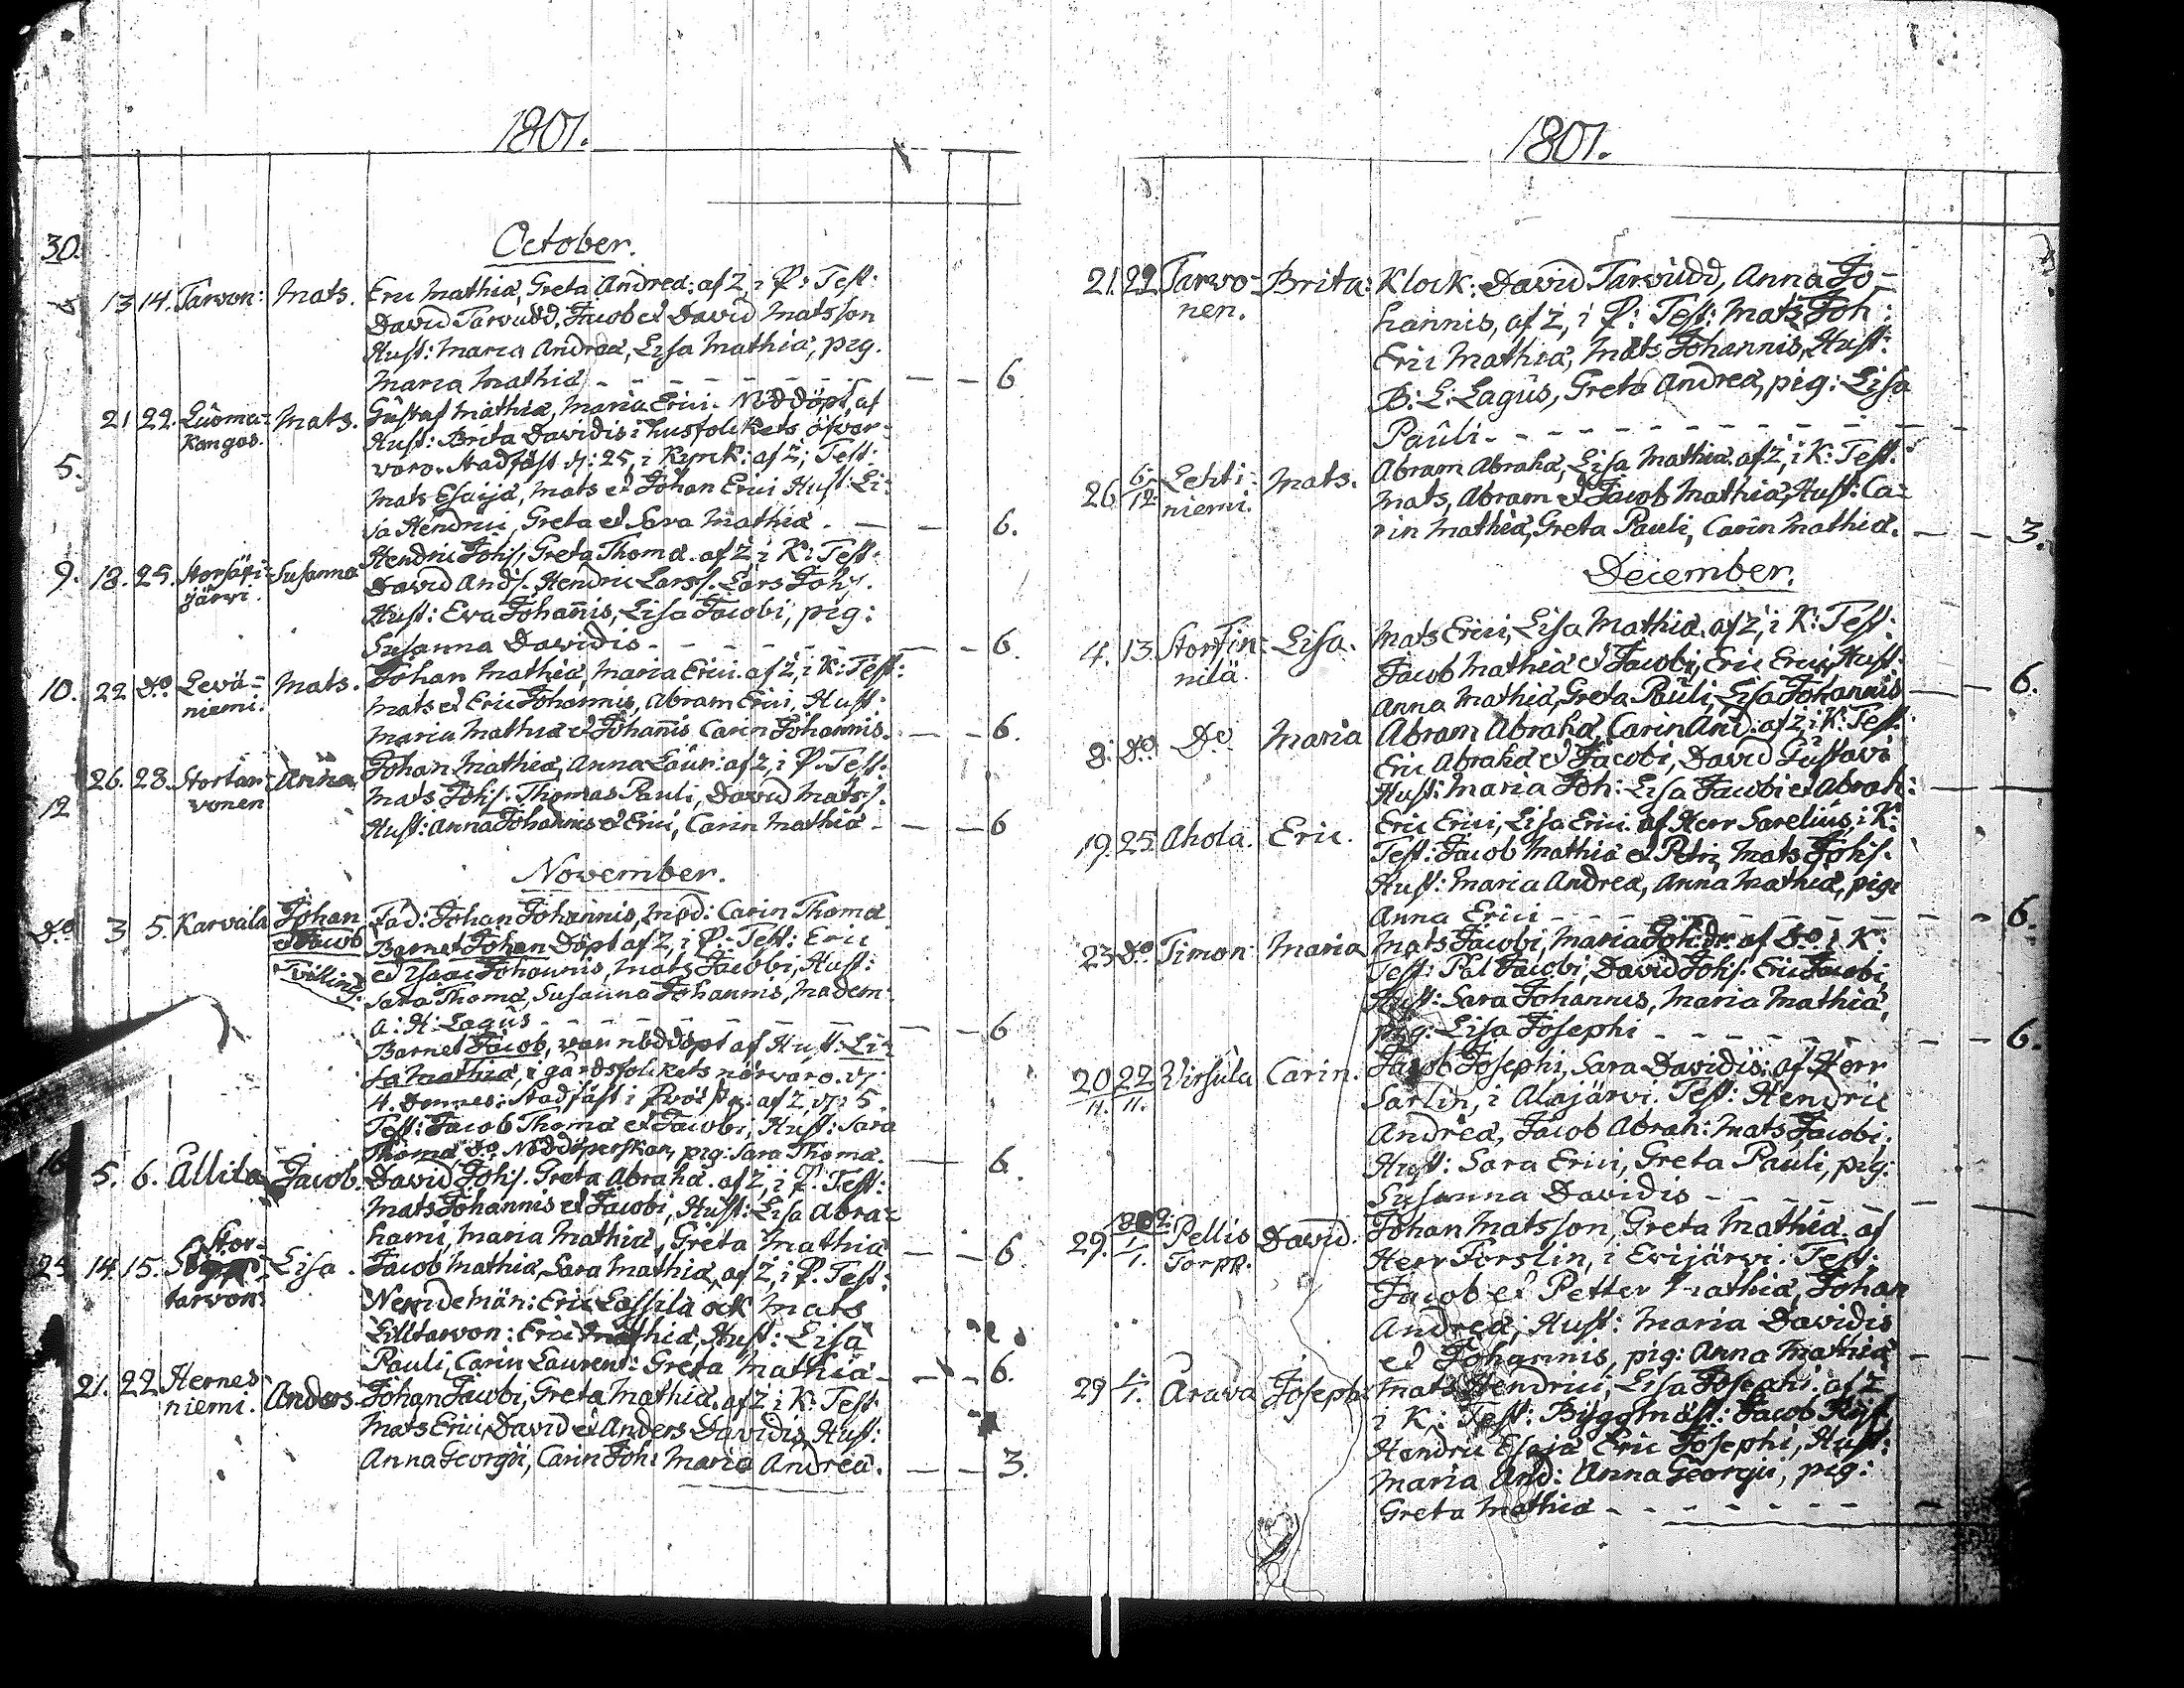 1801.
October.
30.
13 14. Tarvon: Mats. Eric Mathiæ, Greta Andreæ: af Z, i P: Test:
David Tarvudd, Jacob et David Matsson
Hust: Maria Andreæ, Lisa Mathiæ, pig.
Maria Mathiæ - - - - - - - - - 6
21 22. Luoma= Mats. Gustaf Mathiæ, Maria Erici. Nöddöpt af
kangas. Hust: Brita Davidis i husfolkets öfver=
varo. Stadfäst d: 25, i Kyrk: af Z; Test:
5.
Mats Esaiæ, Mats et Johan Erici Hust: Li=
sa Hendrici, Greta et Sara Mathiæ. — — 6.
9. 18. 25. Storsäxi= Susanna Hendric Johs, Greta Thomæ. af Z, i K: Test:
järvi. David Ands. Hendric Larss. Lars Johs.
Hust: Eva Johannis, Lisa Jacobi, pig:
Susanna Davidis - - - - - - - 6.
10. 22 Do Levä= Mats. Johan Mathiæ, Maria Erici. af Z, i K: Test:
niemi. Mats et Eric Johannis, Abram Erici, Hust:
Maria Mathiæ et Johannis Carin Johannis. — — 6.
26. 28. Stortar= Anna Johan Mathiæ, Anna Laur: af Z, i P. Test:
vonen Mats Johs. Thomas Pauli, David Matss.
12
Hust: Anna Johannis et Erici, Carin Mathiæ - — — 6
November.
Do 3 5. Karvala Johan Fad: Johan Johannis, Mod: Carin Thomæ.
et Jacob Barnet Johan Döpt af Z, i P: Test: Eric
Tvilling: et Isaac Johannis, Mats Jacobi, Hust:
Sara Thomæ, Susanna Johannis, Madem:
A: H: Lagus - - - - - - - - 6
Barnet Jacob, var nöddöpt af Hust: Li=
sa Mathiæ, i gårdsfolkets närvaro. d:
4. Dennes: Stadfäst i af Z, d: 5.
Test: Jacob Thomæ et Jacobi, Hust: Sara
Thomæ Do Nöddöperskan, pig: Sara Thomæ. — 6
5. 6. Allila Jacob. David Johs. Greta Abrahæ. af Z, i P. Test:
Mats Johannis et Jacobi, Hust: Lisa Abra=
hami, Maria Mathiæ, Greta Mathiæ — — 6
14. 15. Stor= Lisa. Jacob Mathiæ, Sara Mathiæ, af Z, i P. Test:
tarvon: Nemdemän: Eric Lassila ock Mats
Lilltarvon: Eric Mathiæ, Hust: Lisa
Pauli, Carin Laurent: Greta Mathiæ - - - 6.
21. 22 Hernes= Anders. Johan Jacobi, Greta Mathiæ. af Z, i K: Test:
niemi. Mats Erici, David et Anders Davidis, Hust:
Anna Georgii, Carin Joh: Maria Andreæ. — — 3.
1801.
21. 22. Tarvo= Brita: Klock: David Tarvudd, Anna Jo=
nen. hannis, af Z, i P: Test: Mats Joh:
Eric Mathiæ, Mats Johannis, Hust:
B: L: Lagus, Greta Andreæ, pig: Lisa
Pauli. - - - - - - - - - -
26. 6/12. Lehti= Mats. Abram Abrahæ, Lisa Mathiæ. af Z, i K: Test:
niemi. Mats, Abram et Jacob Mathiæ, Hust: Ca=
rin Mathiæ, Greta Pauli, Carin Mathiæ. — — 3.
December.
4. 13. Stortin= Lisa. Mats Erici, Lisa Mathiæ. af Z, i K: Test:
nilä. Jacob Mathiæ et Jacobi, Eric Erici, Hust:
Anna Mathiæ, Greta Pauli, Lisa Johannis — — 6.
8. Do Do Maria Abram Abrahæ, Carin And. af Z, i K: Test.
Eric Abrahæ et Jacobi, David Gustavi
Hust: Maria Joh: Lisa Jacobi et Abrah: — —
19. 25. Ahola. Eric. Eric Erici, Lisa Erici. af Herr Sarelius, i K:
Test: Jacob Mathiæ et Petri, Mats Johs.
Hust: Maria Andreæ, Anna Mathiæ, pig:
Anna Erici - - - - - - - - - 6.
23 Do Timon: Maria Mats Jacobi, Maria Joh:dr. af Do i K:
Test: Pål Jacobi, David Johs. Eric Jacobi,
Hust: Sara Johannis, Maria Mathiæ,
pig: Lisa Josephi - - - - - - - 6.
20/11. 22/11. Virsula Carin. Jacob Josephi, Sara Davidis: af Herr
Sarlin, i Alajärvi. Test: Hendric
Andreæ, Jacob Abrah: Mats Jacobi.
Hust: Sara Erici, Greta Pauli, pig:
Susanna Davidis - - - - -
29. 1802 1/1. Pellis David. Johan Matsson, Greta Mathiæ. af
Torpp. Herr Forslin, i Evijärvi. Test:
Jacob et Petter Mathiæ, Johan
Andreæ, Hust: Maria Davidis
et Johannis, pig: Anna Mathiæ - - -
29 Arava Joseph: Mats Hendrici, Lisa Josephi. af Z
i K: Test: Byggmäst: Jacob
Hendric Esaiæ Eric Josephi, Hust:
Maria And: Anna Georgii, pig:
Greta Mathiæ - - - - - - -